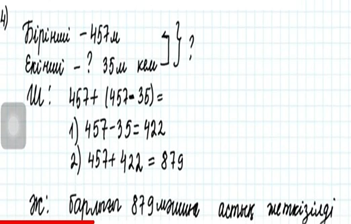 4)
Бірінші – 457м
Екінші – ? 35м кем
?
Ш: 457+(457-35)=
1) 457-35=422
2) 457+422=879
Ж: барлығы 879 машина астық жеткізілді